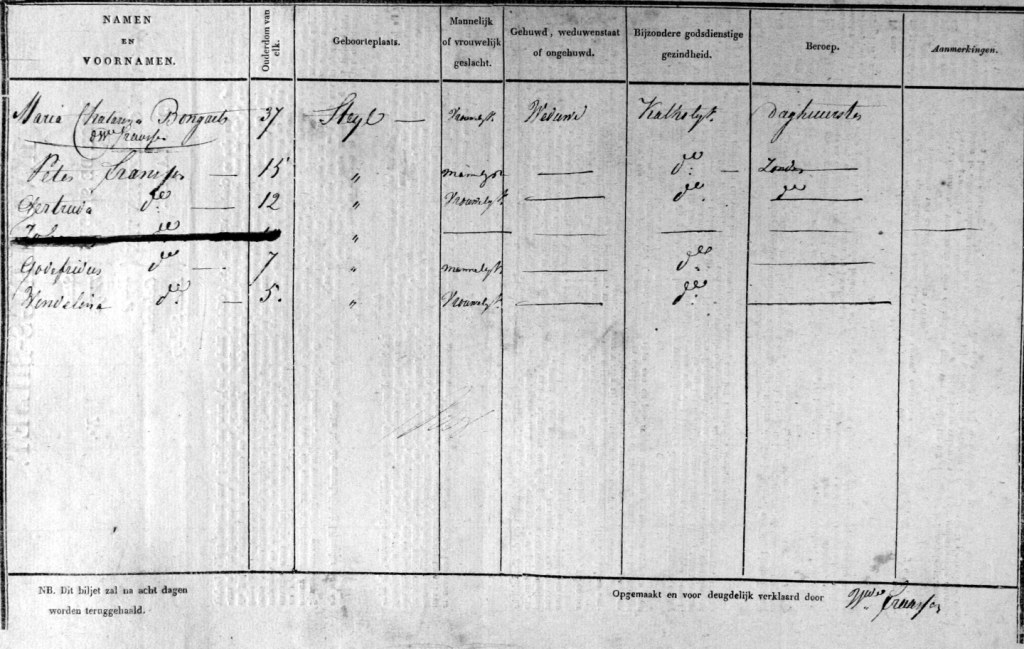 NAMEN EN VOORNAMEN. Ouderdom van elk. Geboorteplaats. Mannelijk of vrouwelijk geslacht. Gehuwd, weduwenstaat of ongehuwd. Bijzondere godsdienstige gezindheid. Beroep. Aanmerkingen.
Maria 37 Stryl — Vrouwelyk. Weduwe Katholyk.
dWe
Peter — 15 " mannelyk do. — Zonder
Gertruda do — 12 " Vrouwelyk — do do
do " — — — — —
Godefridus do — 7 " mannelyk — do —
Wendelina do. — 5. " Vrouwelyk. — do —
NB. Dit biljet zal na acht dagen
worden teruggehaald.
Opgemaakt en voor deugdelijk verklaard door Wede